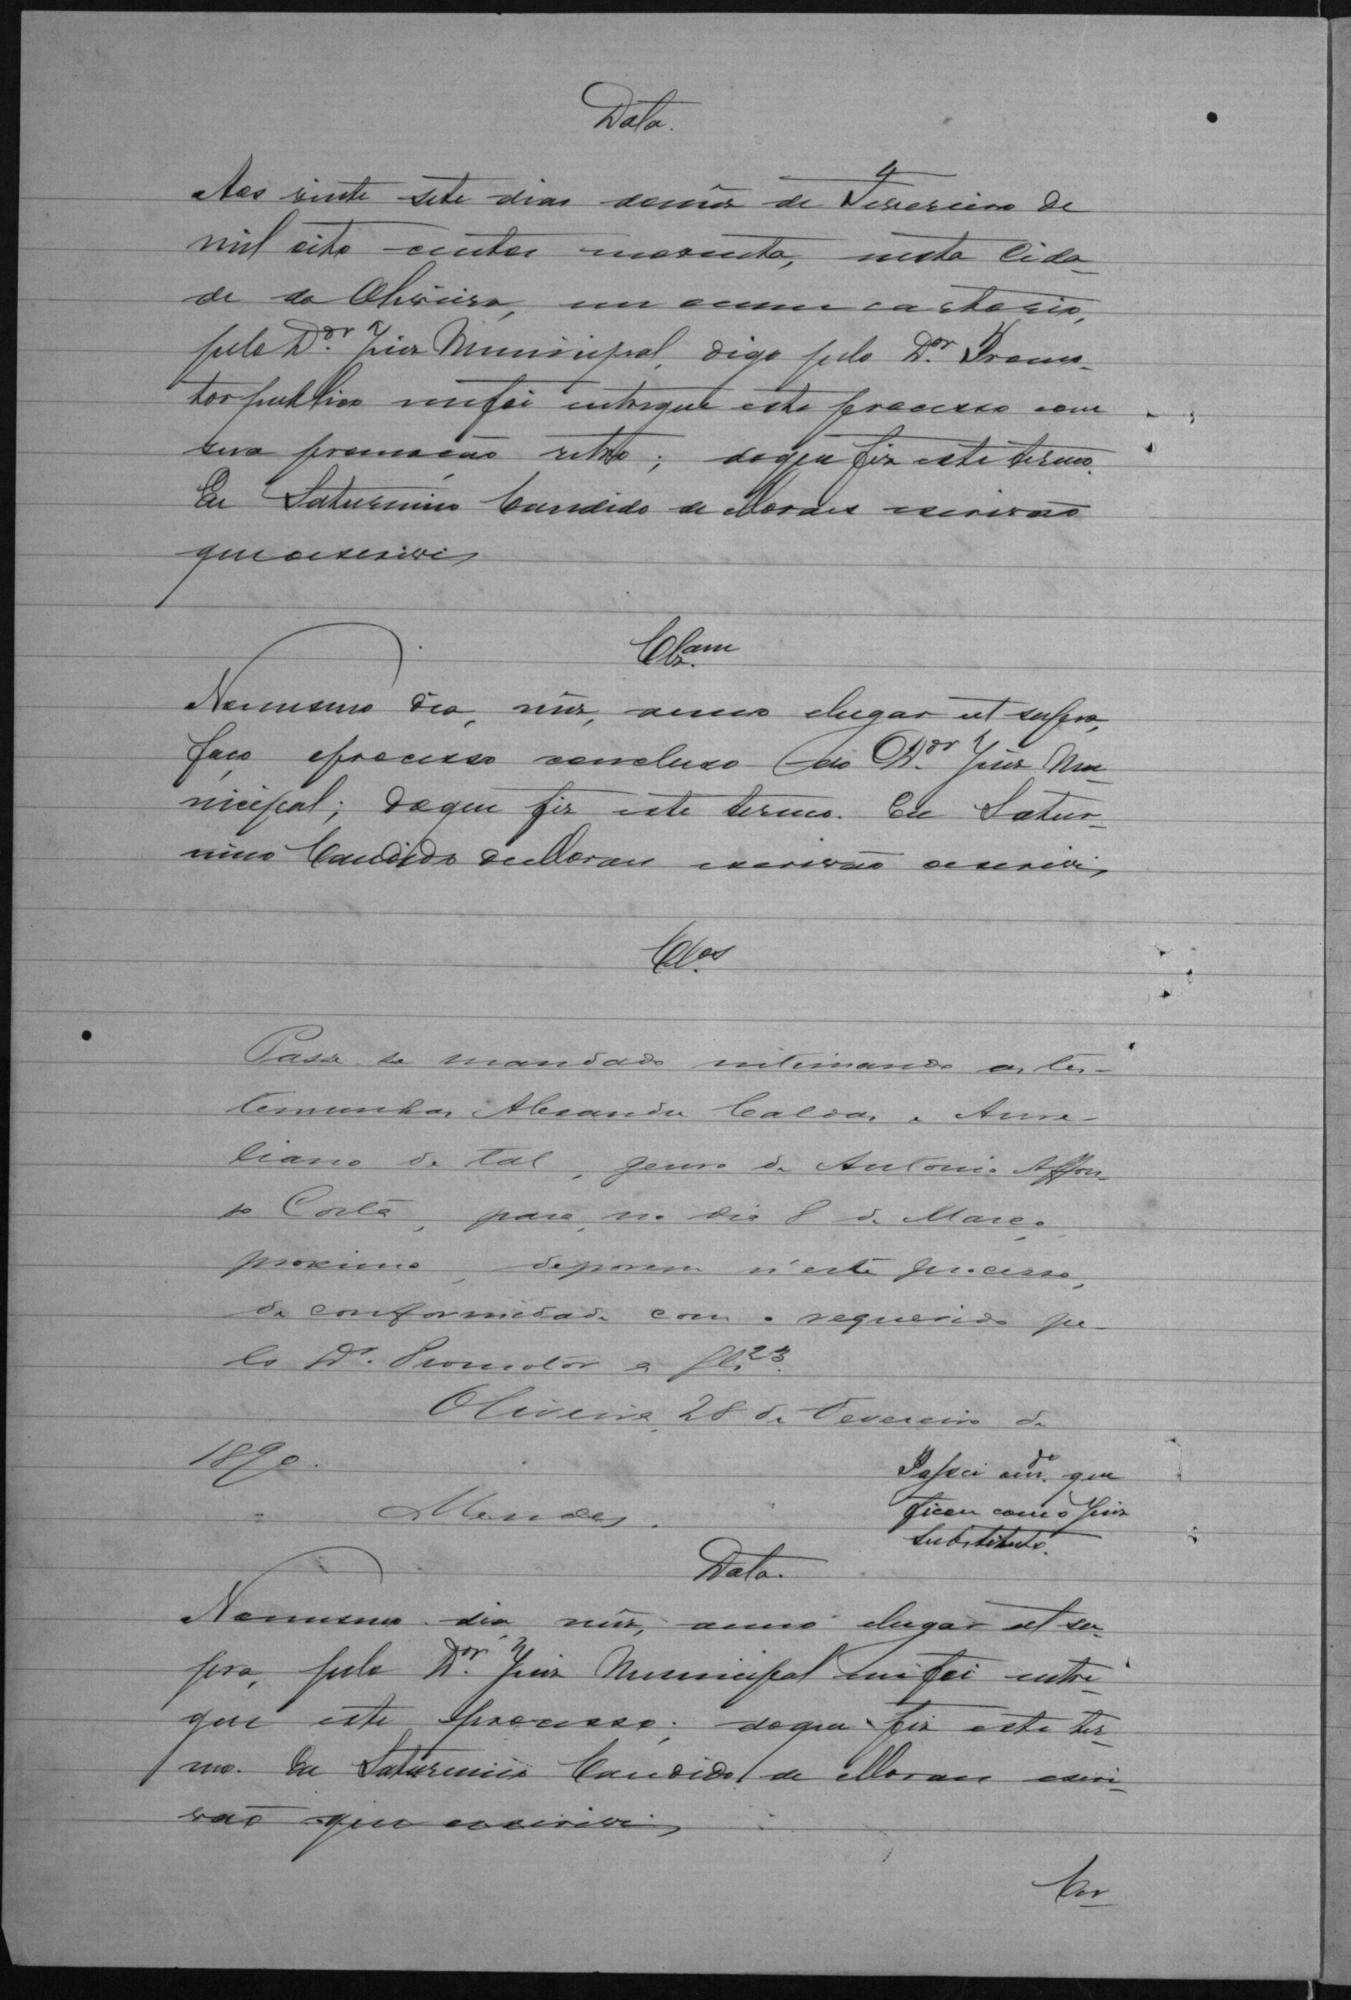 Data.
Aos vinte sete dias domez de Fevereiro de
mil oito centos enoventa, nesta Cida-
de da Oliveira, em omeu cartorio,
pelo D.or Juiz Municipal, digo pelo D.or Promo-
tor publico mefoi entregue este processo com
sua promoção retro; doque fiz este termo.
Eu Saturnino Candido de Moraes escrivão
que oescrivi
Clz.am
Nomesmo dia, mez, anno elugar ut supra,
faço oprocesso concluso ao D.or Juiz Mu-
nicipal; doque fiz este termo. Eu Satur-
nino Candido deMoraes escrivão oescrivi,
Cl.os
Passe se mandado intimando as tes-
temunhas Alexandre Caldas e Aure-
liano de tal, genro de Antonio Affon-
so Costa, para, no dia 8 de Março
proximo, deporem n'este processo,
de conformidade com o requerido pe-
lo Dr. Promotor a fls 23.
Oliveira, 28 de Fevereiro de
1890.
Mendes.
Passei m.do que
ficou com o Juiz
substituto.
Data.
Nomesmo dia, mez, anno elugar ut su-
pra, pelo D.or Juiz Municipal mefoi entre-
gue este processo; doque fiz este ter-
mo. Eu Saturnino Candido de Moraes escri-
vão que oescrivi,
Cer-